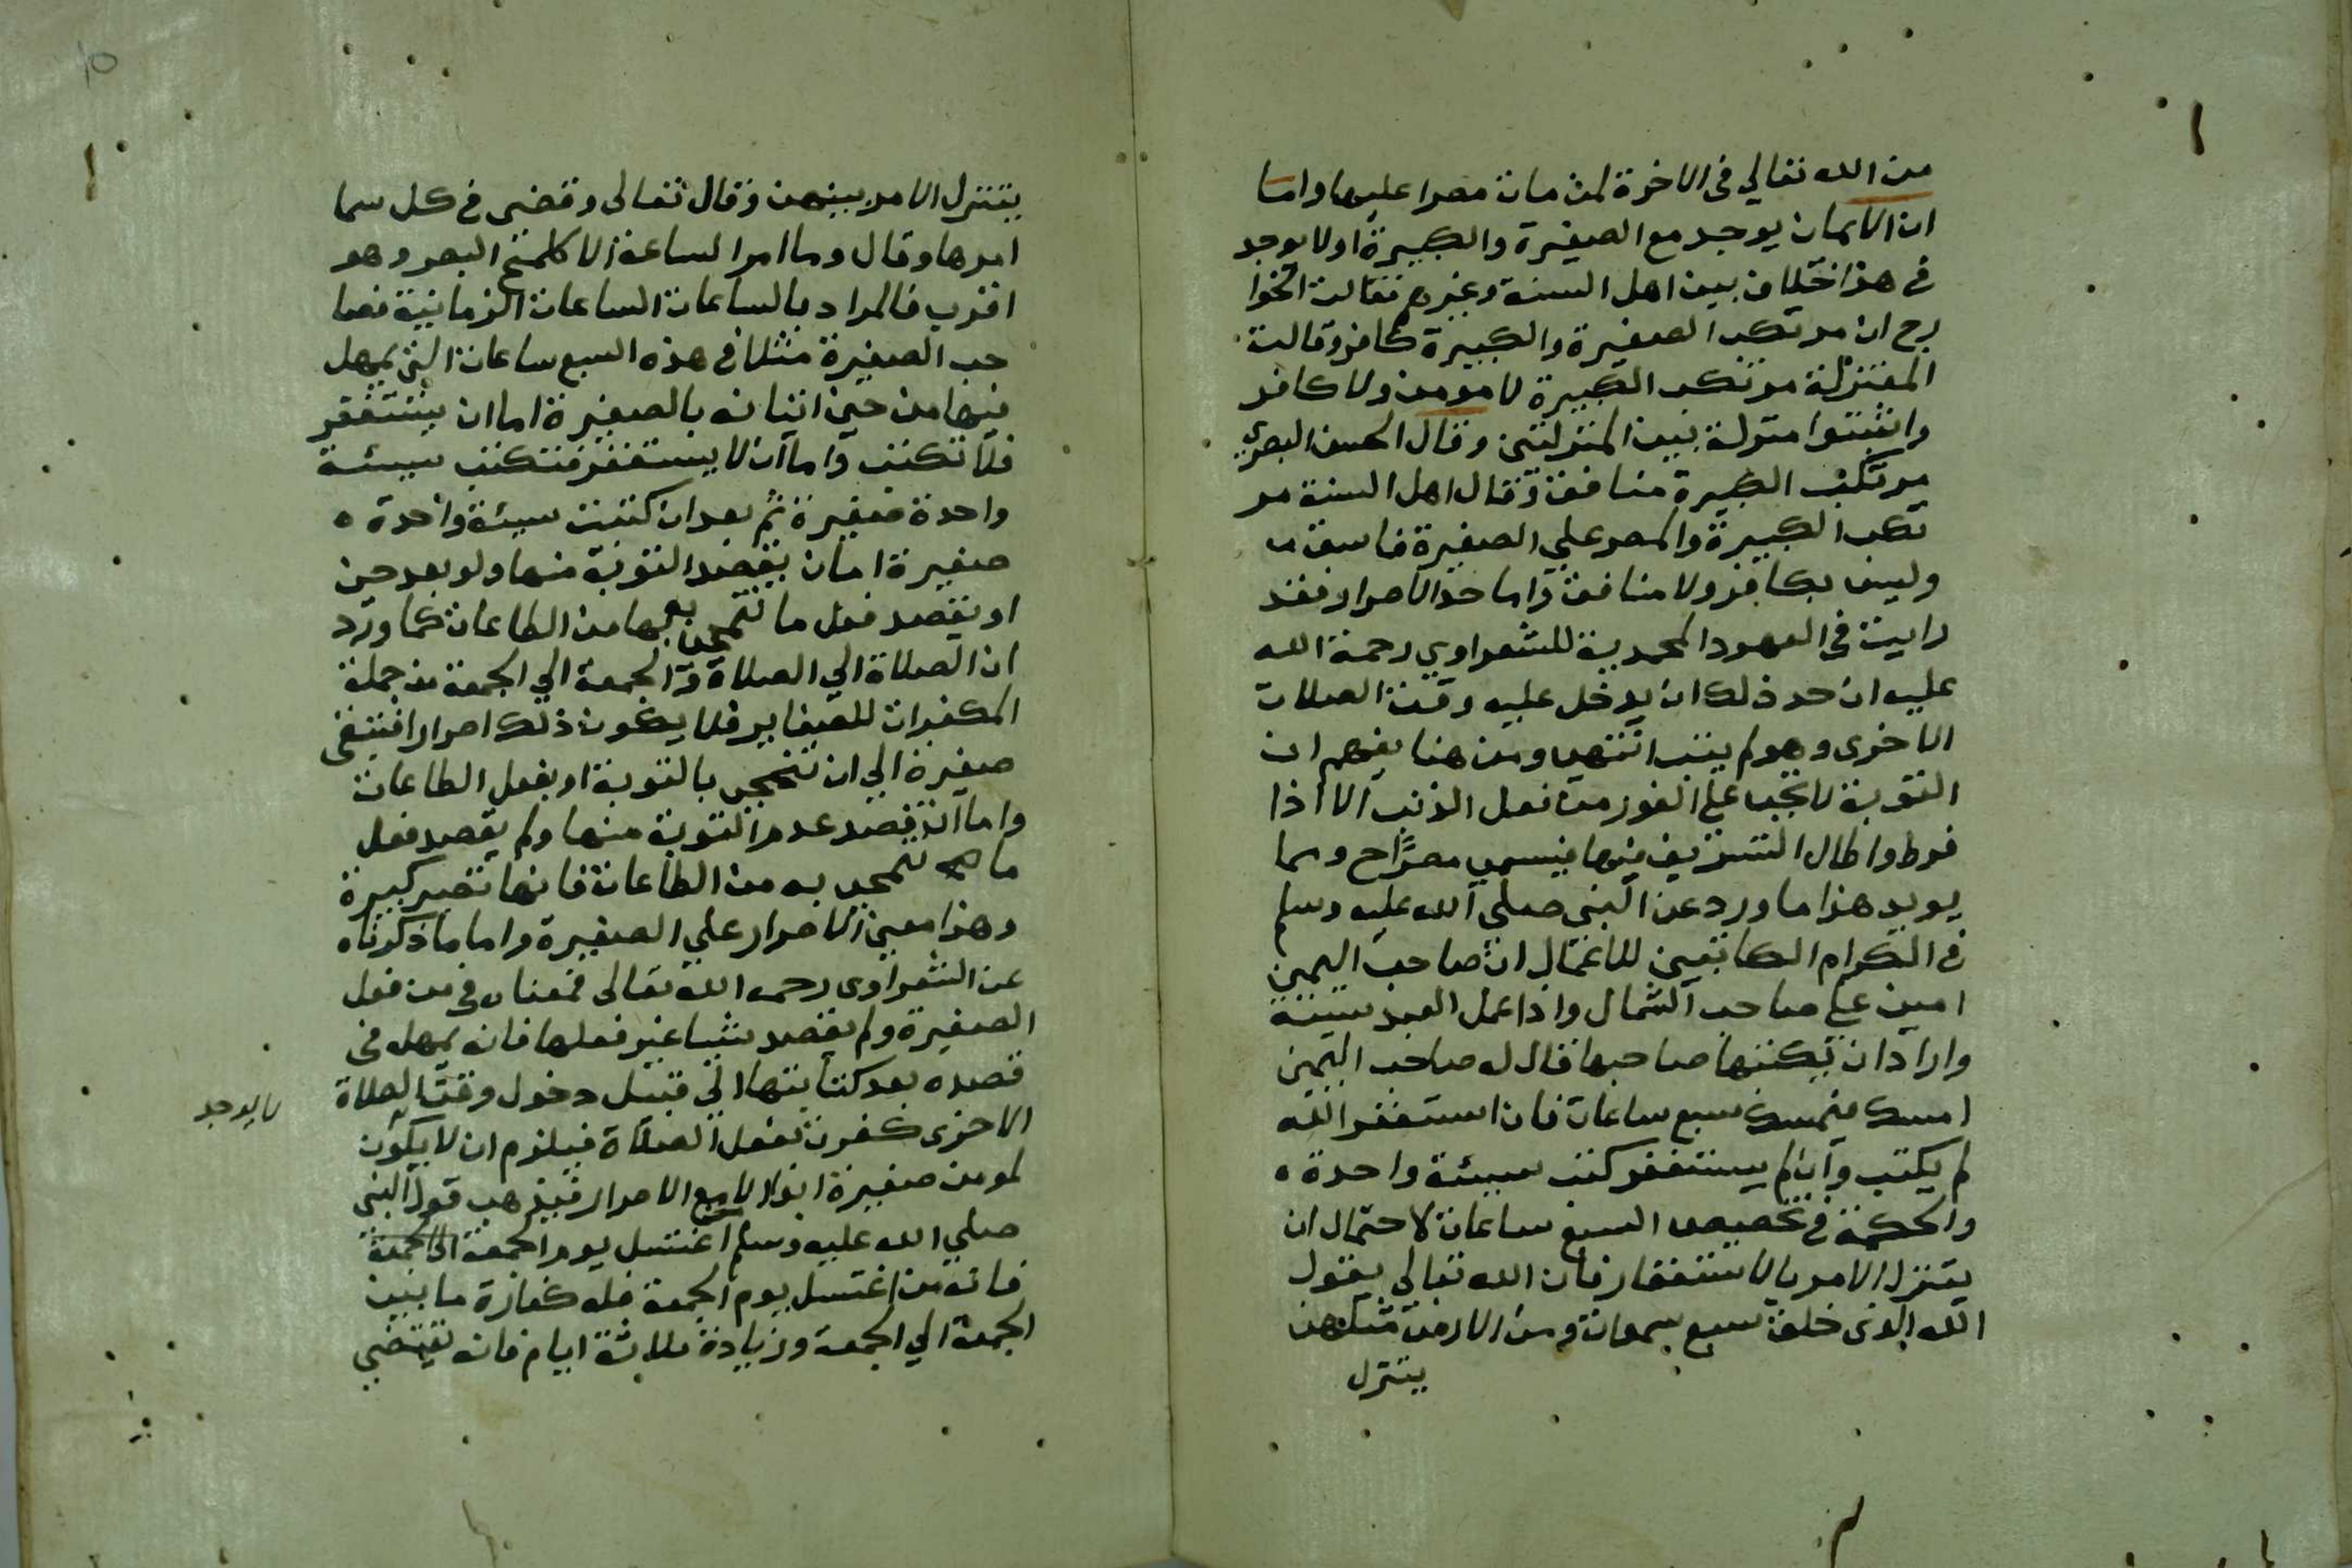 من الله تعالي في الاخرة لمن مات مصرا عليها واما
ان الايمان يوجد مع الصغيرة والكبيرة اولا يوجد
في هذا خلاف بين اهل السنة وغيرهم فقالت الخوا
رج ان مرتكب الصغيرة والكبيرة كافر وقالت
المعتزلة مرتكب الكبيرة لا مومن ولا كافر
واثبتوا منزلة بين المنزلتين وقال الحسن البصري
مرتكب الكبيرة منافق وقال اهل السنة مر
تكب الكبيرة والمصر علي الصغيرة فاسق
وليس بكافر ولا منافق واما حد الاصرار فقد
رايت في العهود المحمدية للشعراوي رحمة الله
عليه ان حد ذلك ان يدخل عليه وقت الصلات
الاخرى وهو لم يتب انتهي ومن هنا يفهم ان
التوبة لا تجب علي الفور من فعل الذنب الا اذا
فرط واطال التسويف فيها فيسمي مصرا ح ومما
يويد هذا ما ورد عن النبي صلي الله عليه وسلم
في الكرام الكاتبين للاعمال ان صاحب اليمين
امين علي صاحب الشمال واذا عمل العبد سيئة
واراد ان يكتبها صاحبها قال له صاحب اليمين
امسك فيمسك سبع ساعات فان استغفر الله
لم يكتب وان لم يستغفر كتب سيئة واحدة
والحكمة في تخصيص السبع ساعات لاحتمال ان
يتنزل الامر بالاستغفار فان الله تعالي يقول
الله الذي خلق سبع سموات ومن الارض مثلهن
يتنزل
١٥
يتنزل الامر بينهن وقال تعالى وقضى في كل سما
امرها وقال وما امر الساعة الا كلمح البصر وهو
اقرب فالمراد بالساعات الساعات الزمانية فصا
حب الصغيرة مثلا في هذه السبع ساعات التي يمهل
فيها من حين اتيانه بالصغيرة اما ان يستغفر
فلا تكتب واما ان لا يستغفر فتكتب سيئة
واحدة صغيرة ثم بعد ان كتبت سيئة واحدة
صغيرة اما ان يقصد التوبة منها ولو بعد حين
او يقصد فعل ما تمحي به من الطاعات كما ورد
ان الصلاة الي الصلاة والجمعة الي الجمعة من جملة
المكفرات للصغاير فلا يكون ذلك اصرارا فتبقى
صغيرة الي ان تنمحي بالتوبة او بفعل الطاعات
واما ان يقصد عدم التوبة منها ولم يقصد فعل
ما تمحي به من الطاعات فانها تصير كبيرة
وهذا معني الاصرار علي الصغيرة واما ما ذكرناه
عن الشعراوي رحمه الله تعالى فمعناه في من فعل
الصغيرة ولم يقصد شيا غير فعلها فانه يمهل في
قصده بعد كتابتها الي قبيل دخول وقت الصلاة
الاخرى كفرت بفعل الصلاة فيلزم ان لا يكون
لا يوجد
لمومن صغيرة ابدا الا مع الاصرار فيذهب قول النبي
صلي الله عليه وسلم اغتسل يوم الجمعة الي الجمعة
فانه من اغتسل يوم الجمعة فله كفارة ما بين
الجمعة الي الجمعة وزيادة ثلاثة ايام فانه يقتضي